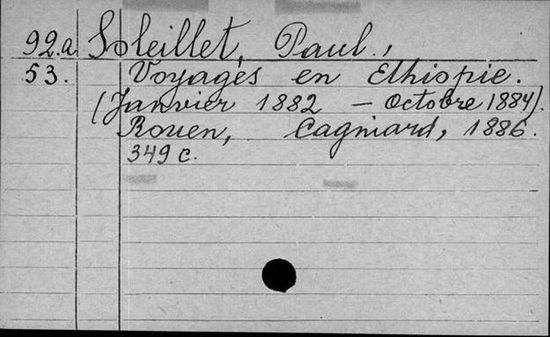 92.a Soleillet, Paul.,
53. Voyages en Ethiopie.
(Janvier 1882 – Octobre 1884).
Rouen, Cagniard, 1886.
349 c.